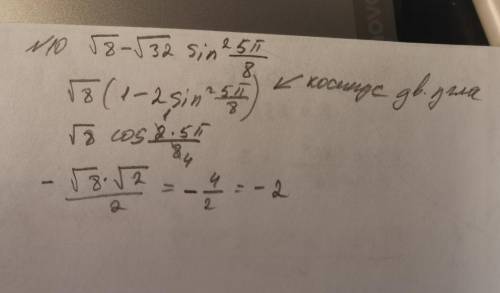 №10 √8 - √32 sin² 5π/8
√8 (1 - 2 sin² 5π/8) ↙ косинус дв. угла
√8 cos 2·5π/8 4
- √8·√2/2 = - 4/2 = - 2